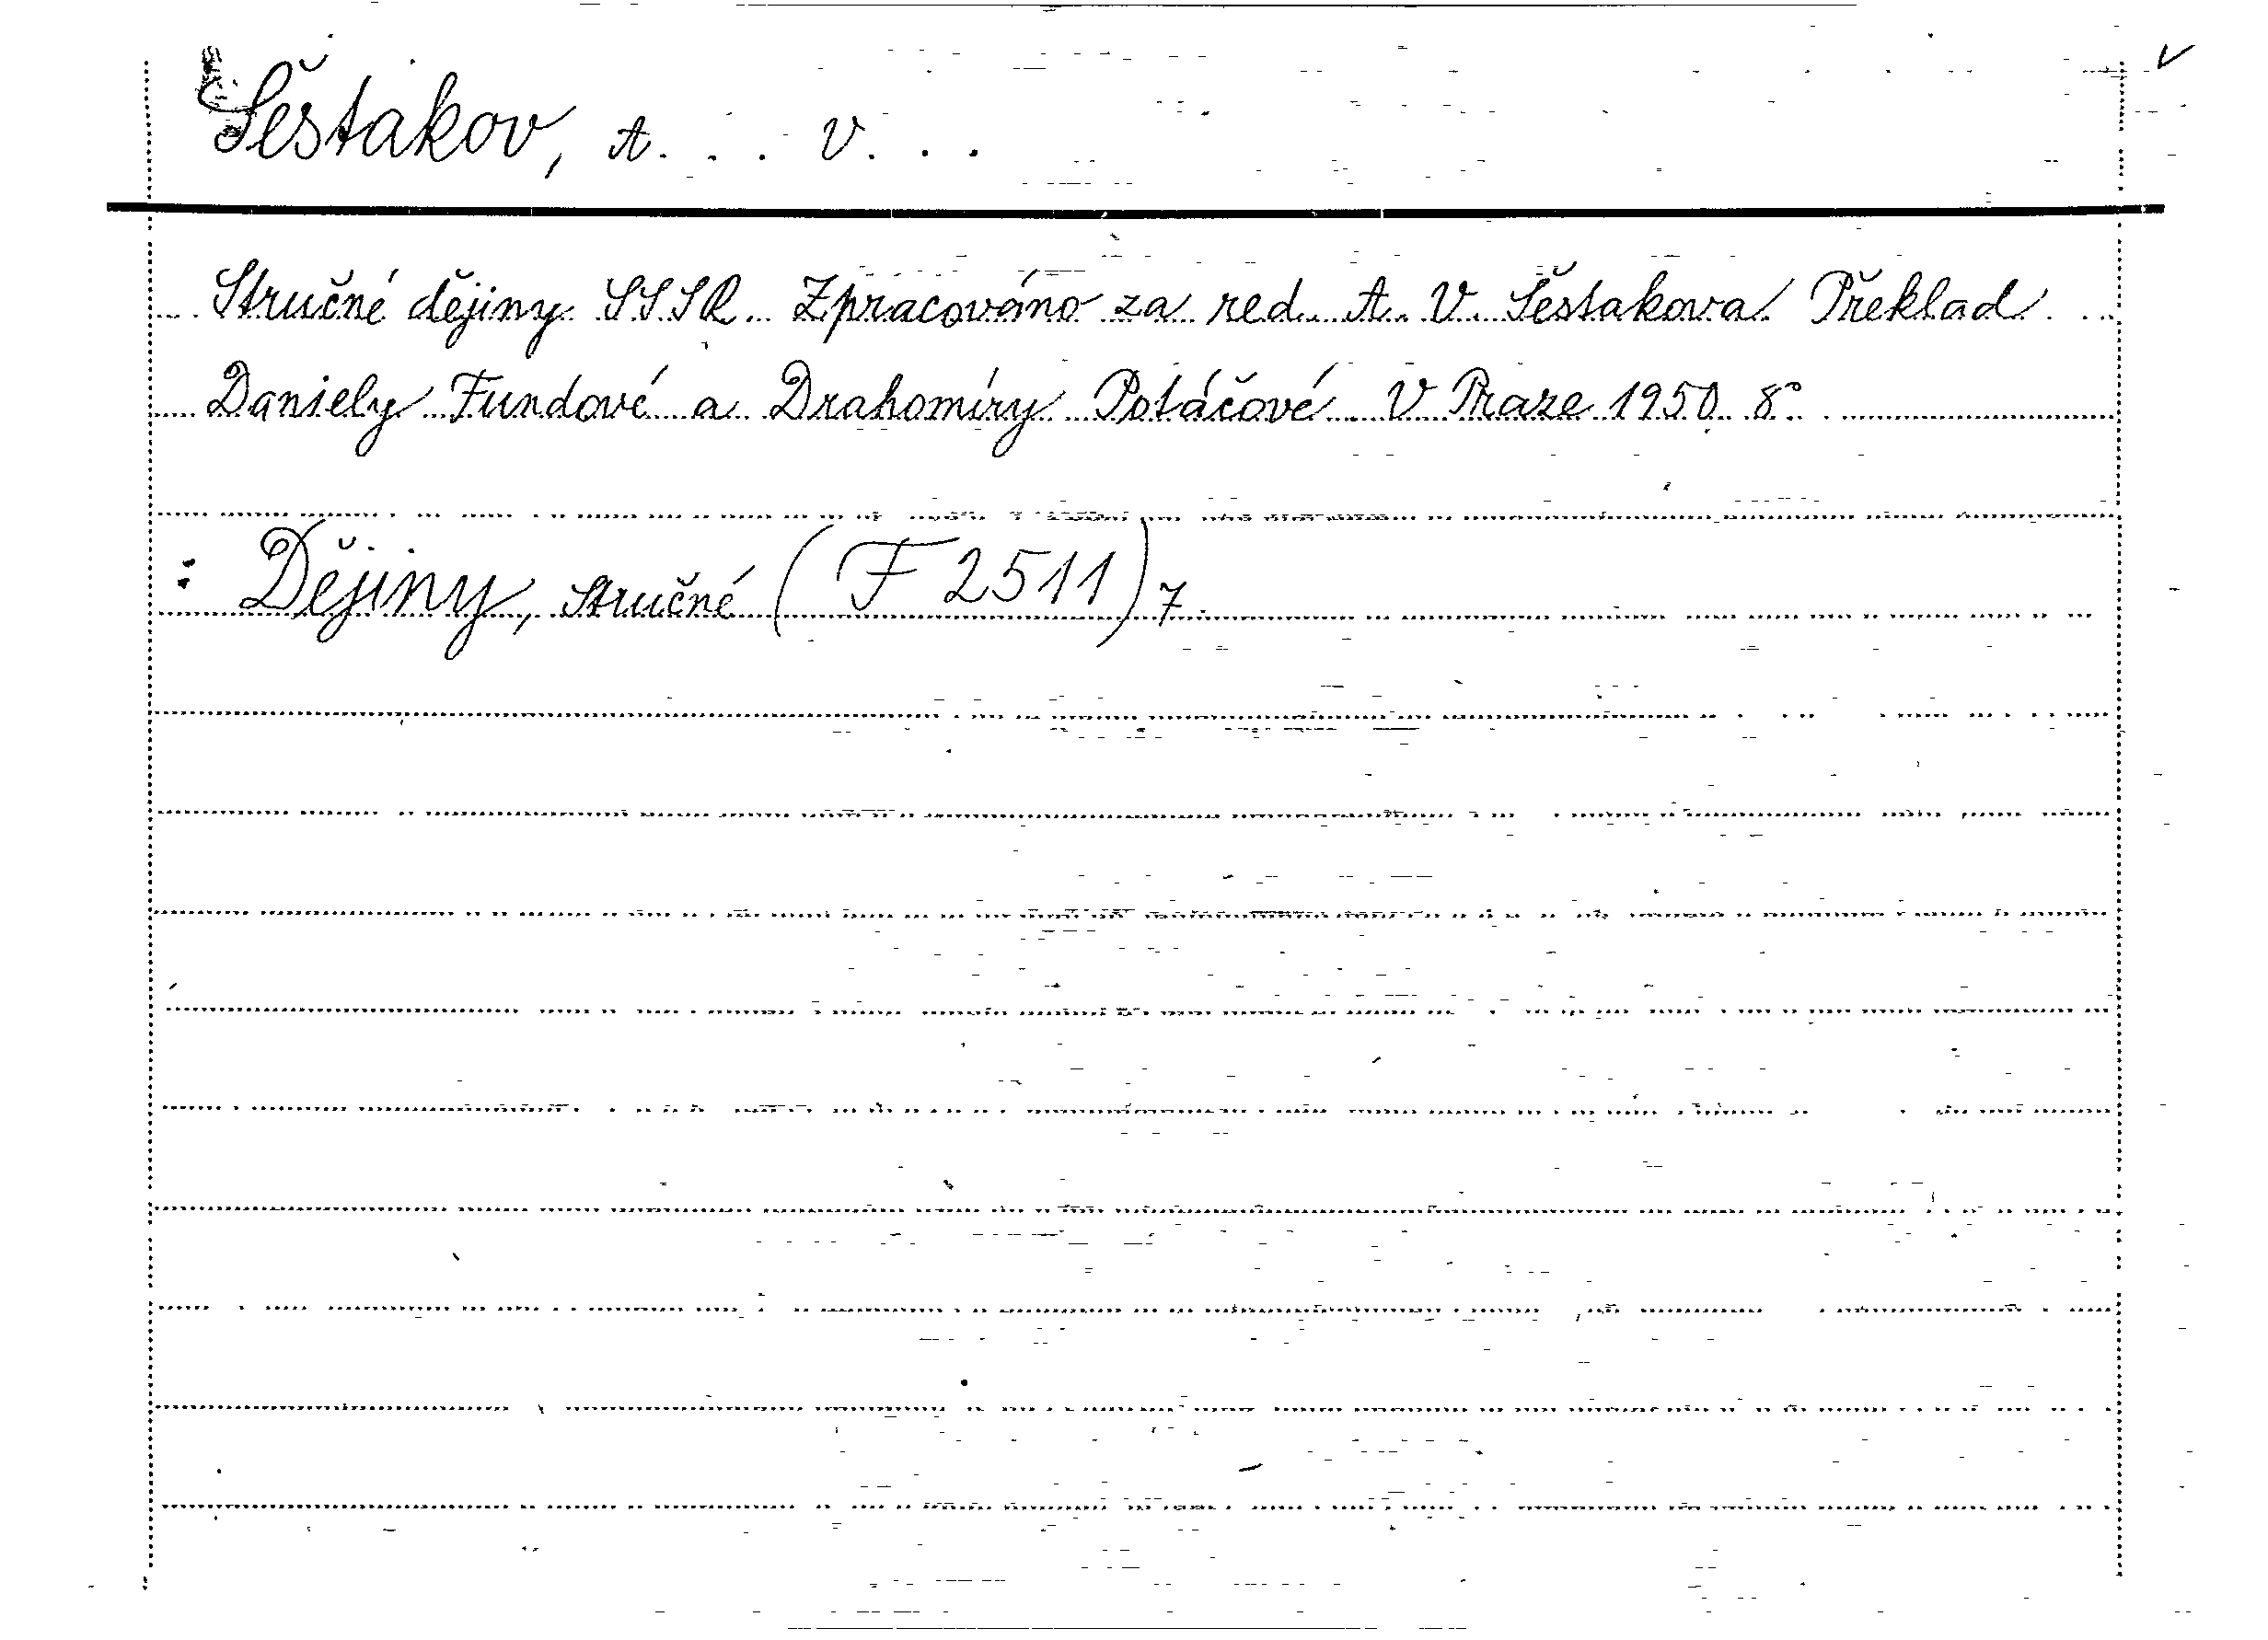 Šěstakov, A. . . V. . .
Stručné dějiny SSSR. Zpracováno za red. A. V. Šestakova. Překlad
Daniely Fundové a Drahomíry Potáčové. V Praze 1950. 8°.
: Dějiny, stručné (F 2511) 7.